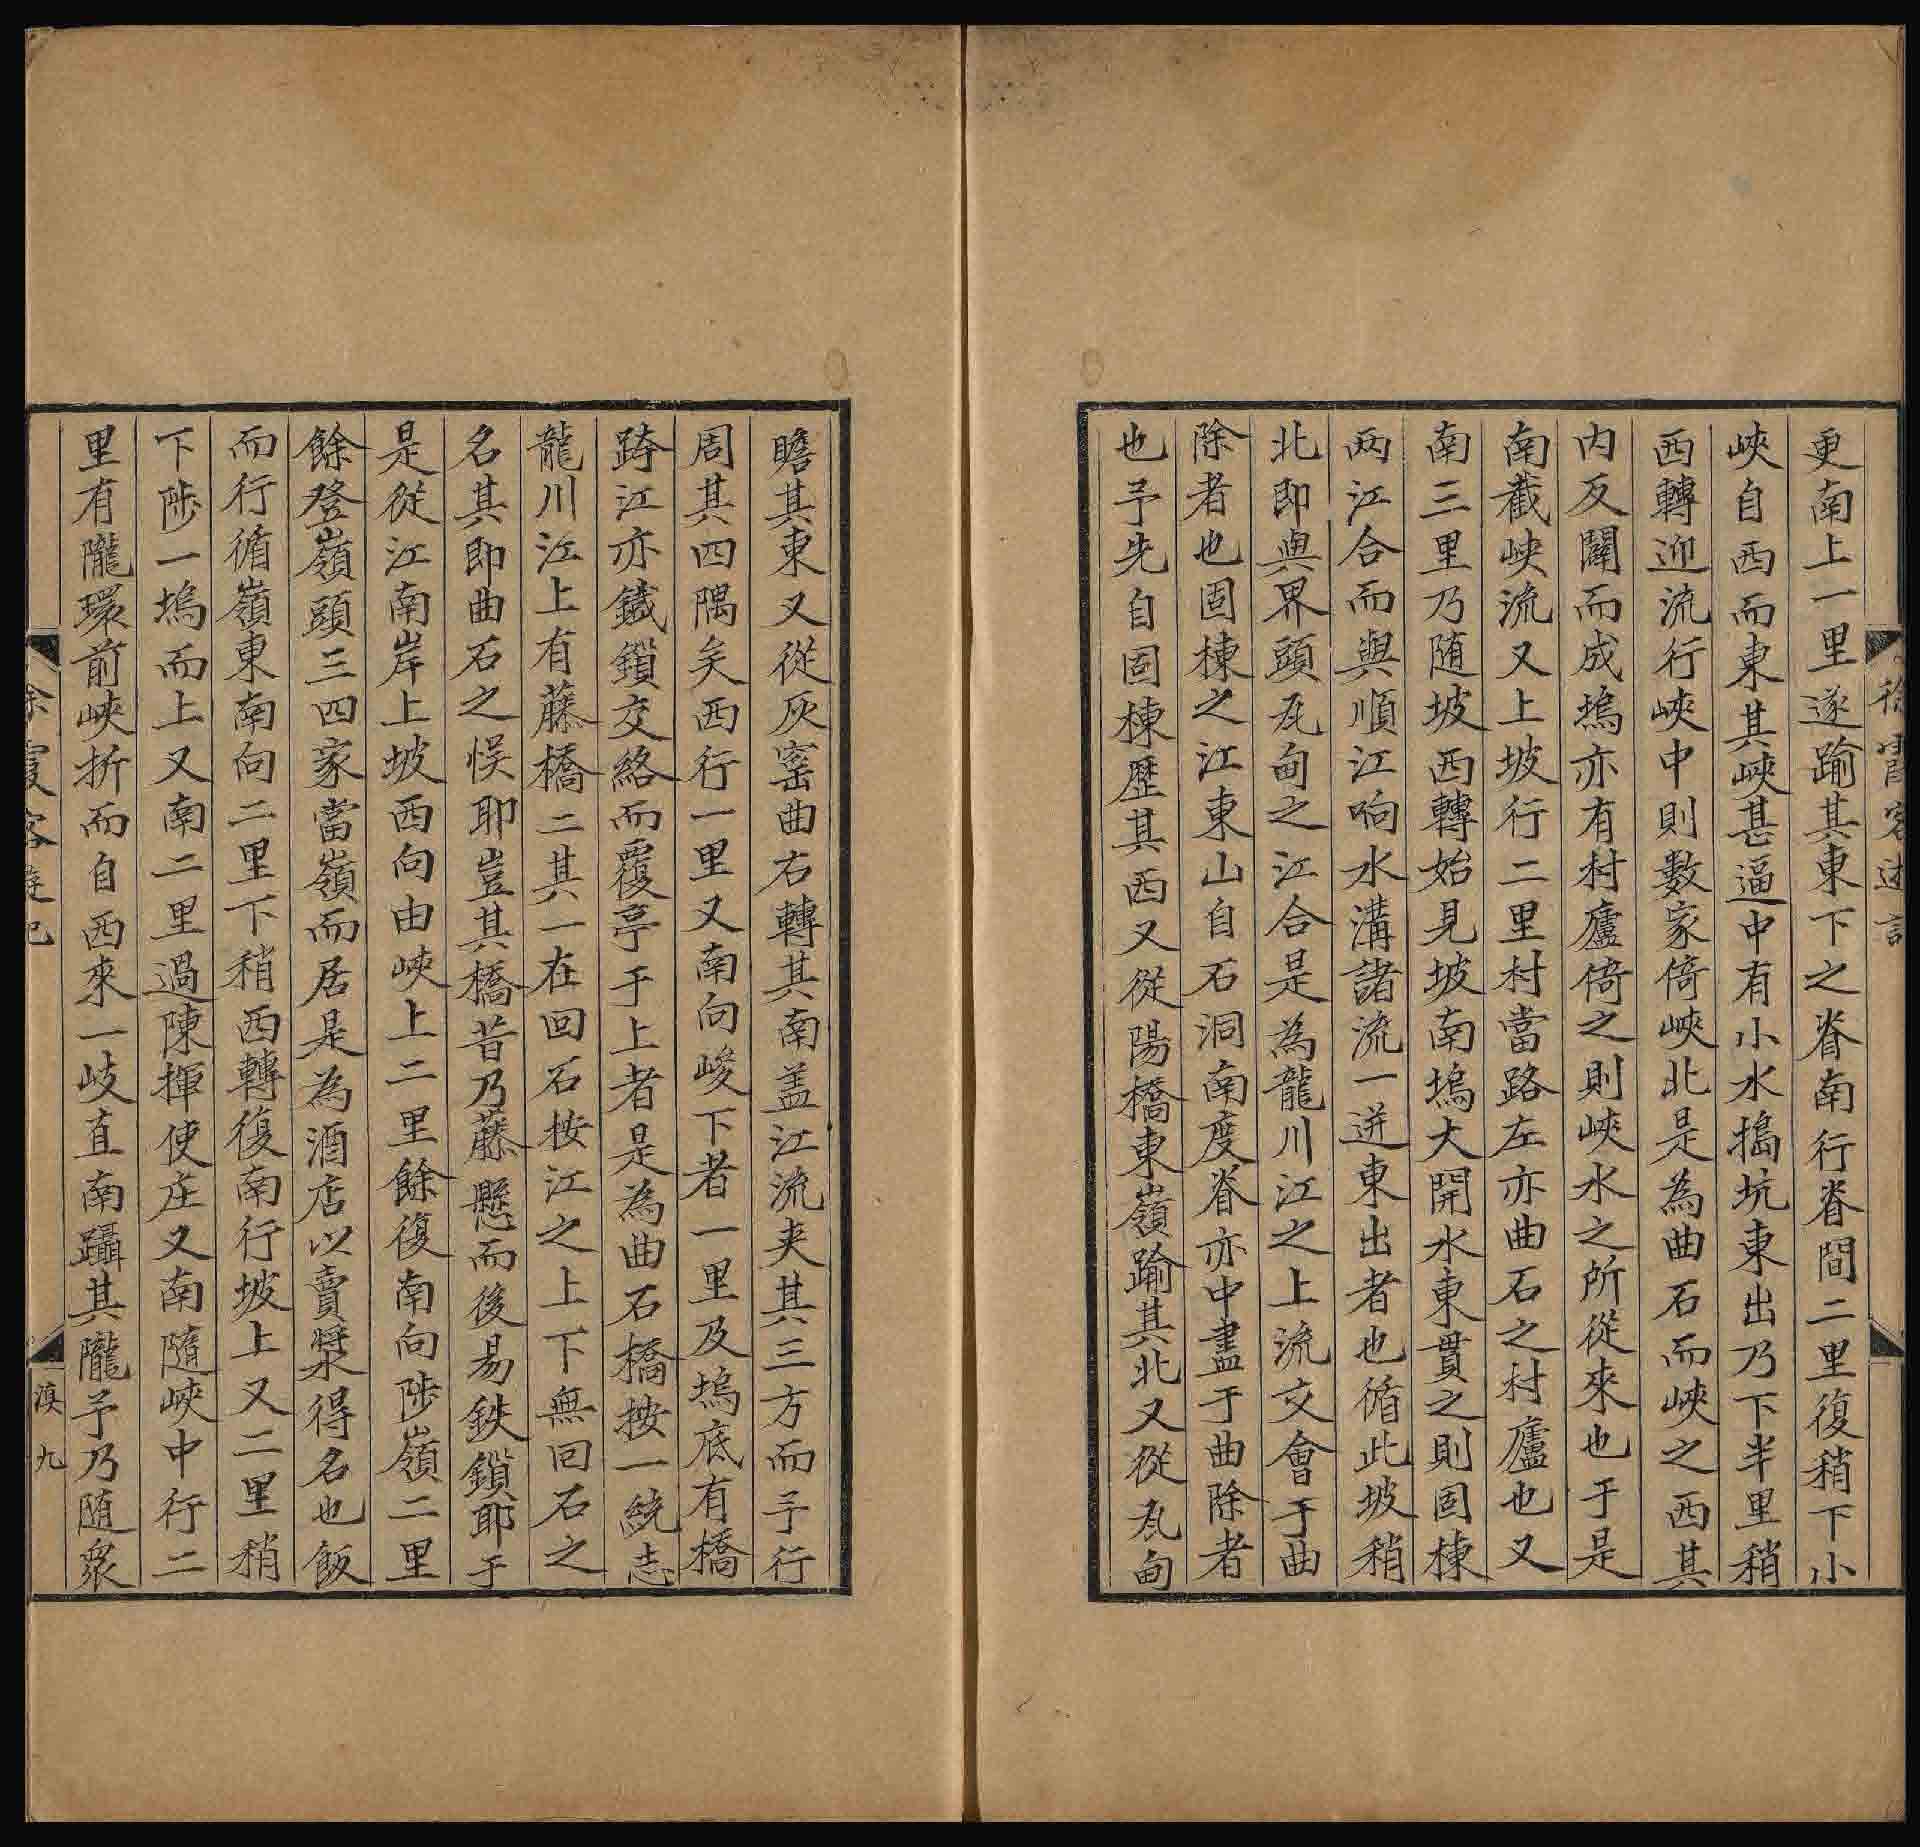 更南上一里遂踰其東下之脊南行脊間二里復稍下小
峽自西而東其峽甚逼中有小水搗坑東出乃下半里稍
西轉迎流行峽中則數家倚峽北是為曲石而峽之西其
内反闢而成塢亦有村廬倚之則峽水之所從來也于是
南截峽流又上坡行二里村當路左亦曲石之村廬也又
南三里乃随坡西轉始見坡南塢大開水東貫之則固棟
两江合而與順江响水溝諸流一迸東出者也循此坡稍
北即與界頭瓦甸之江合是為龍川江之上流交會于曲
除者也固棟之江東山自石洞南度脊亦中盡于曲除者
也予先自固棟歷其西又從陽橋東嶺踰其北又從瓦甸
瞻其東又從灰窰曲右轉其南盖江流夹其三方而予行
周其四隅矣西行一里又南向峻下者一里及塢底有橋
跨江亦鐵鎖交絡而覆亭于上者是為曲石橋按一統志
龍川江上有藤橋二其一在回石按江之上下無回石之
名其即曲石之悮耶豈其橋昔乃藤懸而後易鉄鎖耶于
是從江南岸上坡西向由峽上二里餘復南向陟嶺二里
餘登嶺頭三四家當嶺而居是為酒店以賣漿得名也飯
而行循嶺東南向二里下稍西轉復南行坡上又二里稍
下陟一塢而上又南二里過陳揮使庄又南隨峽中行二
里有隴環前峽折而自西來一岐直南躡其隴予乃随衆
徐霞客遊記
滇九